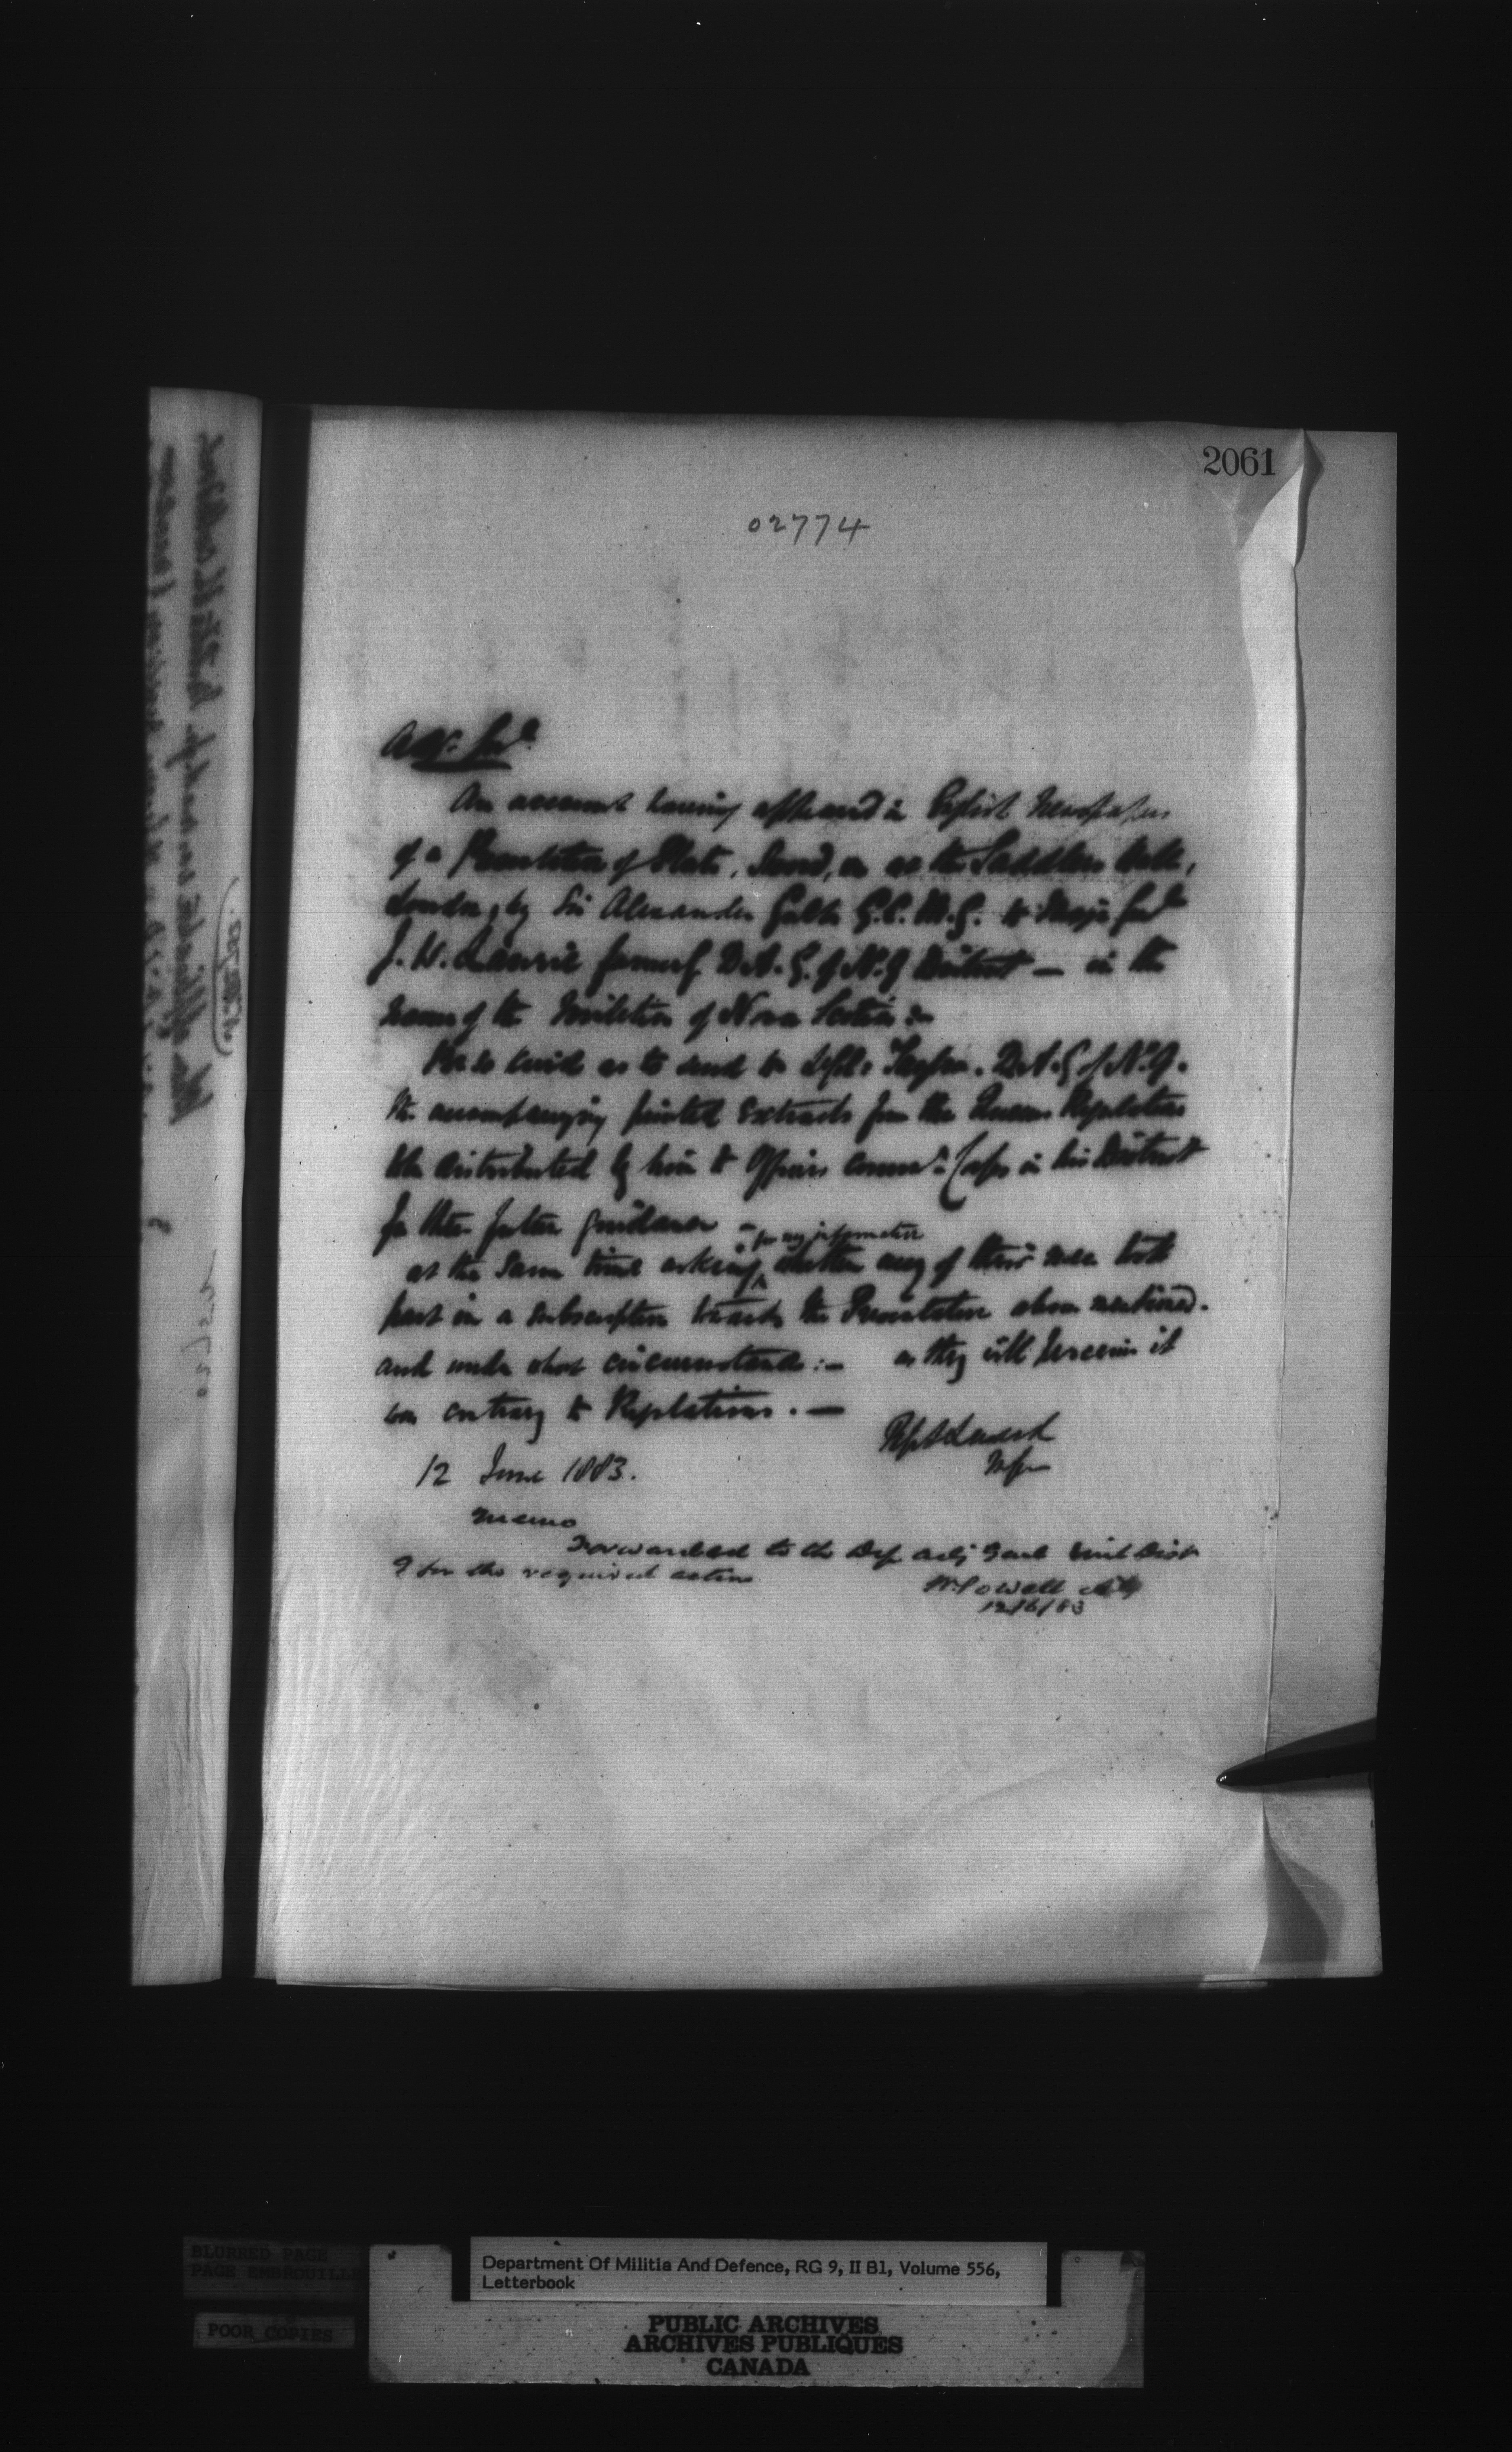 2061
02774
Adj. Genl.
An account having appeared in English Newspapers
of a Presentation of Plate, Sword, at the Saddlers Hall,
London, by Sir Alexander Galt G.C.M.G. to Major Genl
J. W. Laurie formerly D.A.G. of No. 9 District — in the
name of the Militia of Nova Scotia :—
Be so kind as to send to Taylor. D.A.G. of No. 9.
the accompanying printed Extracts from the Queens Regulations
to be distributed by him to Officers Comdg Corps in his District
for their future guidance —
at the same time asking for my information whether any of their men took
part in a subscription towards the Presentation above mentioned.
and under what circumstances :— as they will perceive it
was contrary to Regulations. —
12 June 1883.
Memo
Forwarded to the Dep Adj Genl Mil Dist
9 for the required action
W. Powell
12/6/83
BLURRED PAGE
PAGE EMBROUILLE
POOR COPIES
Department Of Militia And Defence, RG 9, II B1, Volume 556,
Letterbook
PUBLIC ARCHIVES
ARCHIVES PUBLIQUES
CANADA